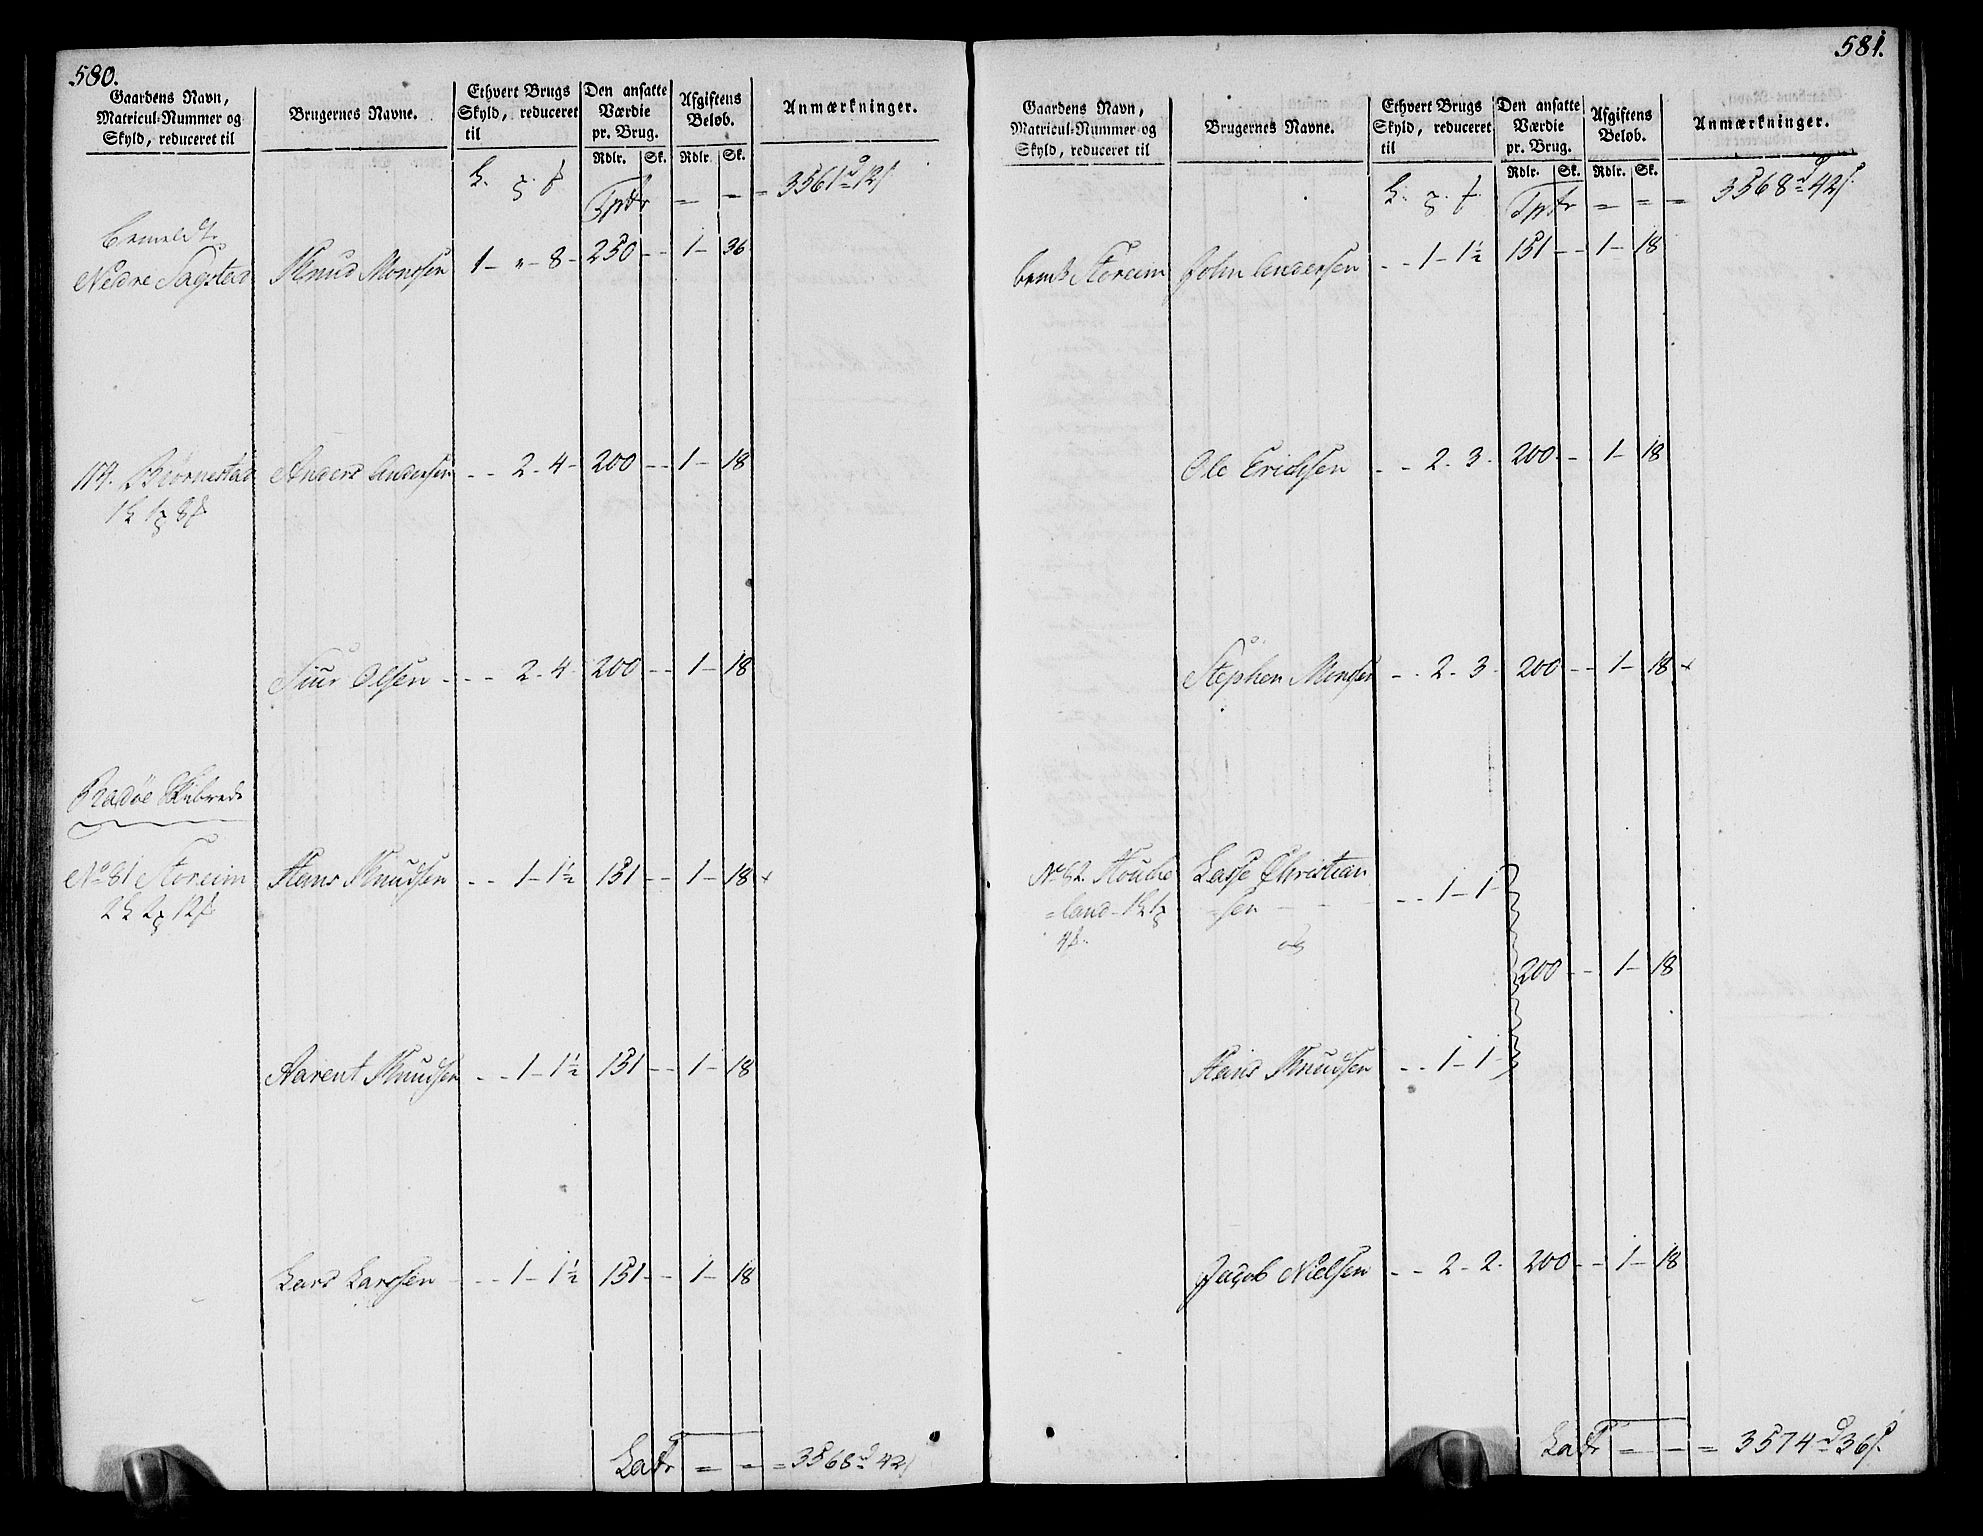 580.
Gaardens Navn,
Matricul-Nummer og
Skyld, reduceret til
Brugernes Navne.
Ethvert Brugs
Skyld, reduceret
til
Den ansatte
Værdie
pr. Brug.
Rdlr. Sk.
Afgiftens
Beløb.
Rdlr. Sk.
Anmærkninger.
Tptr = = = 3561 d 12 s
bemeldt
Nedre Sagstad Knud Monssen 1 - " - 8 - 250 - - 1 - 36
117. Biørnestad Anders Andersen - - 2 - 4 - 200 - - 1 - 18
Siur Olsen - - - 2 - 4 - 200 - - 1 - 18
Radøe Skibrede
No 81 Storeim Hans Knudsen - - 1 - 1 1/2 151 - - 1 - 18 +
Aarent Knudsen - - 1 - 1 1/2 151 - - 1 - 18
Lars Larssen - - 1 - 1 1/2 151 - - 1 - 18
Latr = = = 3568 d 42 s
581.
Gaardens Navn,
Matricul-Nummer og
Skyld, reduceret til
Brugernes Navne.
Ethvert Brugs
Skyld, reduceret
til
Den ansatte
Værdie
pr. Brug.
Rdlr. Sk.
Afgiftens
Beløb.
Rdlr. Sk.
Anmærkninger.
Tptr = = = 3568 d 42 s
bemt Storeim John Andersen - - 1 - 1 1/2 151 - - 1 - 18
Ole Erichsen - - 2 - 3 - 200 - - 1 - 18
Stephen Monsen - - 2 - 3 - 200 - - 1 - 18 +
No 82 Houke Lasse Christian
=land =sen - - 1 - 1
og
200 - - 1 - 18
Hans Knudsen - - 1 - 1
Jacob Nielsen - - 2 - 2 - 200 - - 1 - 18
Latr = = = 3574 d 36 s